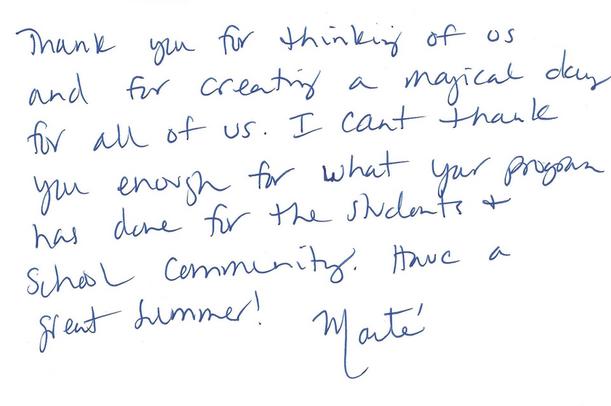 Thank you for thinking of us
and for creating a magical day
for all of us. I cant thank
you enough for what your program
has done for the students +
School Community. Have a
great summer!
Marté